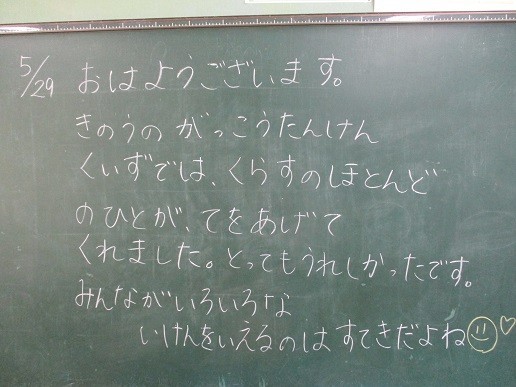 5/29 おはようございます。
きのうの がっこうたんけん
くいずでは、くらすのほとんど
のひとが、てをあげて
くれました。とってもうれしかったです。
みんながいろいろな
いけんをいえるのは すてきだよね